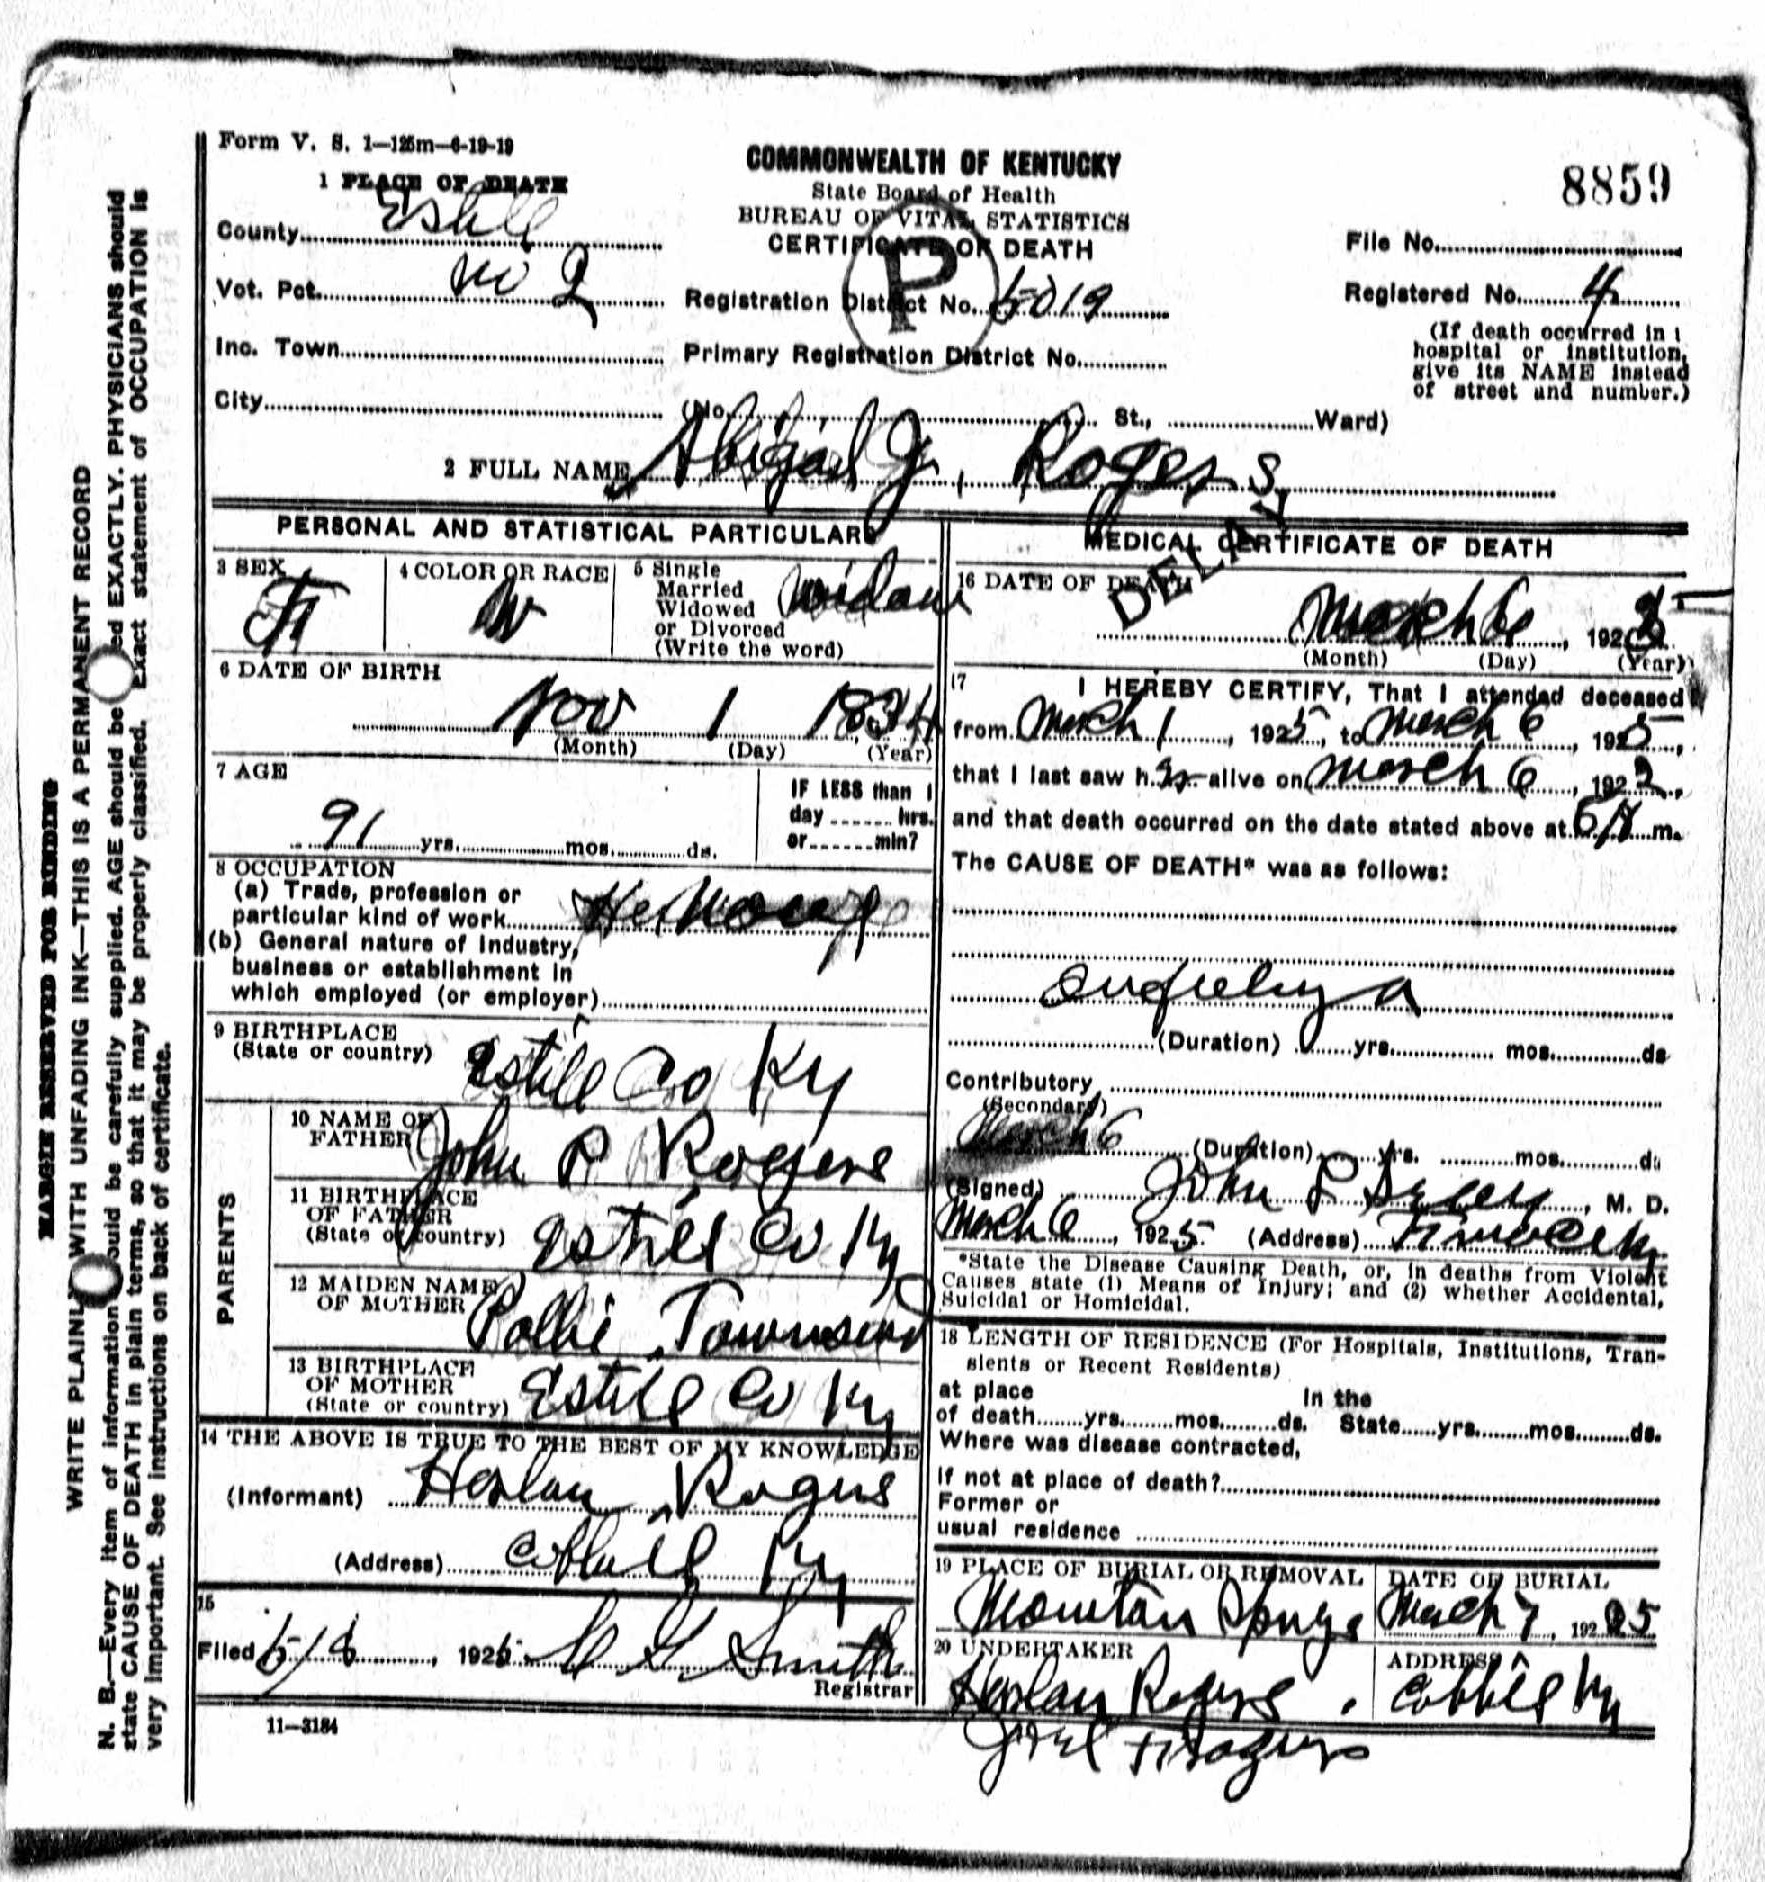 Form V. S. 1—125m—6-19-19
COMMONWEALTH OF KENTUCKY
State Board of Health
BUREAU OF VITAL STATISTICS
CERTIFICATE OF DEATH
8859
1 PLACE OF DEATH
County Estill
File No.
Vot. Pct. No 2
P
Registration District No. 5019
Registered No. 4
Inc. Town
Primary Registration District No.
(If death occurred in
hospital or institution,
give its NAME instead
of street and number.)
City (No. St., Ward)
2 FULL NAME Abigail J. Rogers
DELAY
PERSONAL AND STATISTICAL PARTICULARS
3 SEX F
4 COLOR OR RACE W
5 Single
Married
Widowed
or Divorced
(Write the word)
Widow
6 DATE OF BIRTH
Nov 1 1834
(Month) (Day) (Year)
7 AGE
91 yrs. mos. ds.
IF LESS than 1
day hrs.
or min?
8 OCCUPATION
(a) Trade, profession or
particular kind of work
(b) General nature of Industry,
business or establishment in
which employed (or employer)
9 BIRTHPLACE
(State or country) Estill Co Ky
PARENTS
10 NAME OF
FATHER John R Rogers
11 BIRTHPLACE
OF FATHER
(State or country) Estill Co Ky
12 MAIDEN NAME
OF MOTHER Pollie Townsend
13 BIRTHPLACE
OF MOTHER
(State or country) Estill Co Ky
14 THE ABOVE IS TRUE TO THE BEST OF MY KNOWLEDGE
(Informant) Harlan Rogers
(Address) Cobhill Ky
15
Filed 5/8, 1925 Smith
Registrar
11—3184
MEDICAL CERTIFICATE OF DEATH
16 DATE OF DEATH
March 6, 1925
(Month) (Day) (Year)
17 I HEREBY CERTIFY, That I attended deceased
from March 1, 1925, to March 6, 1925,
that I last saw her alive on March 6, 192
and that death occurred on the date stated above at m.
The CAUSE OF DEATH* was as follows:
(Duration) yrs. mos. ds
Contributory
(Secondary)
March 6 (Duration) yrs. mos. ds
(Signed) John M. D.
March 6, 1925 (Address)
*State the Disease Causing Death, or, in deaths from Violent
Causes state (1) Means of Injury; and (2) whether Accidental,
Suicidal or Homicidal.
18 LENGTH OF RESIDENCE (For Hospitals, Institutions, Tran-
sients or Recent Residents)
at place In the
of death yrs. mos. ds. State yrs. mos. ds.
Where was disease contracted,
If not at place of death?
Former or
usual residence
19 PLACE OF BURIAL OR REMOVAL
Mountain Springs
DATE OF BURIAL
March 7, 1925
20 UNDERTAKER
Harlan Rogers
ADDRESS
Cobhill Ky
MARGIN RESERVED FOR BINDING
WRITE PLAINLY WITH UNFADING INK—THIS IS A PERMANENT RECORD
N. B.—Every item of information should be carefully supplied. AGE should be stated EXACTLY. PHYSICIANS should
state CAUSE OF DEATH in plain terms, so that it may be properly classified. Exact statement of OCCUPATION is
very important. See instructions on back of certificate.